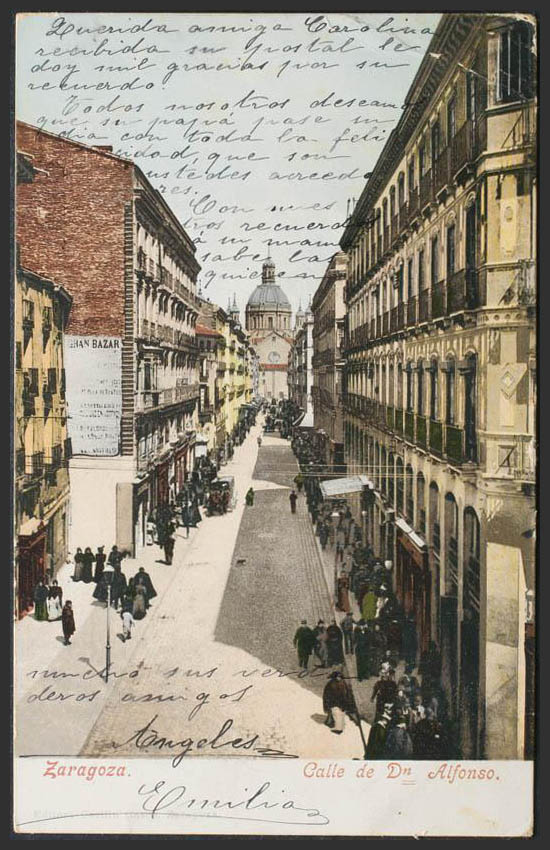 Querida amiga Carolina
recibida su postal le
doy mil gracias por su
recuerdo.
Todos nosotros deseamos
que su papá pase su
dia con toda la feli
cidad, que son
ustedes acreedo
res.
Con nues
tros recuerdos
á su mamá
sabe las
quieren
GRAN BAZAR
mucho sus verda
deros amigos
Angeles
Zaragoza.
Calle de Dn Alfonso.
Emilia